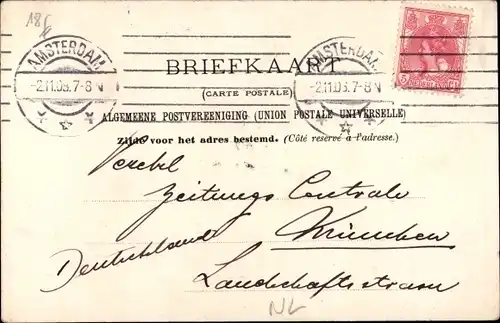 18
AMSTERDAM
-2.11.03.7-8N
AMSTERDAM
-2.11.03.7-8N
5 CT
BRIEFKAART
(CARTE POSTALE)
ALGEMEENE POSTVEREENIGING (UNION POSTALE UNIVERSELLE)
Zijde voor het adres bestemd. (Côté réservé à l'adresse.)
Zeitungs Centrale
München
Deutschland
Landschaftsstrasse
NL